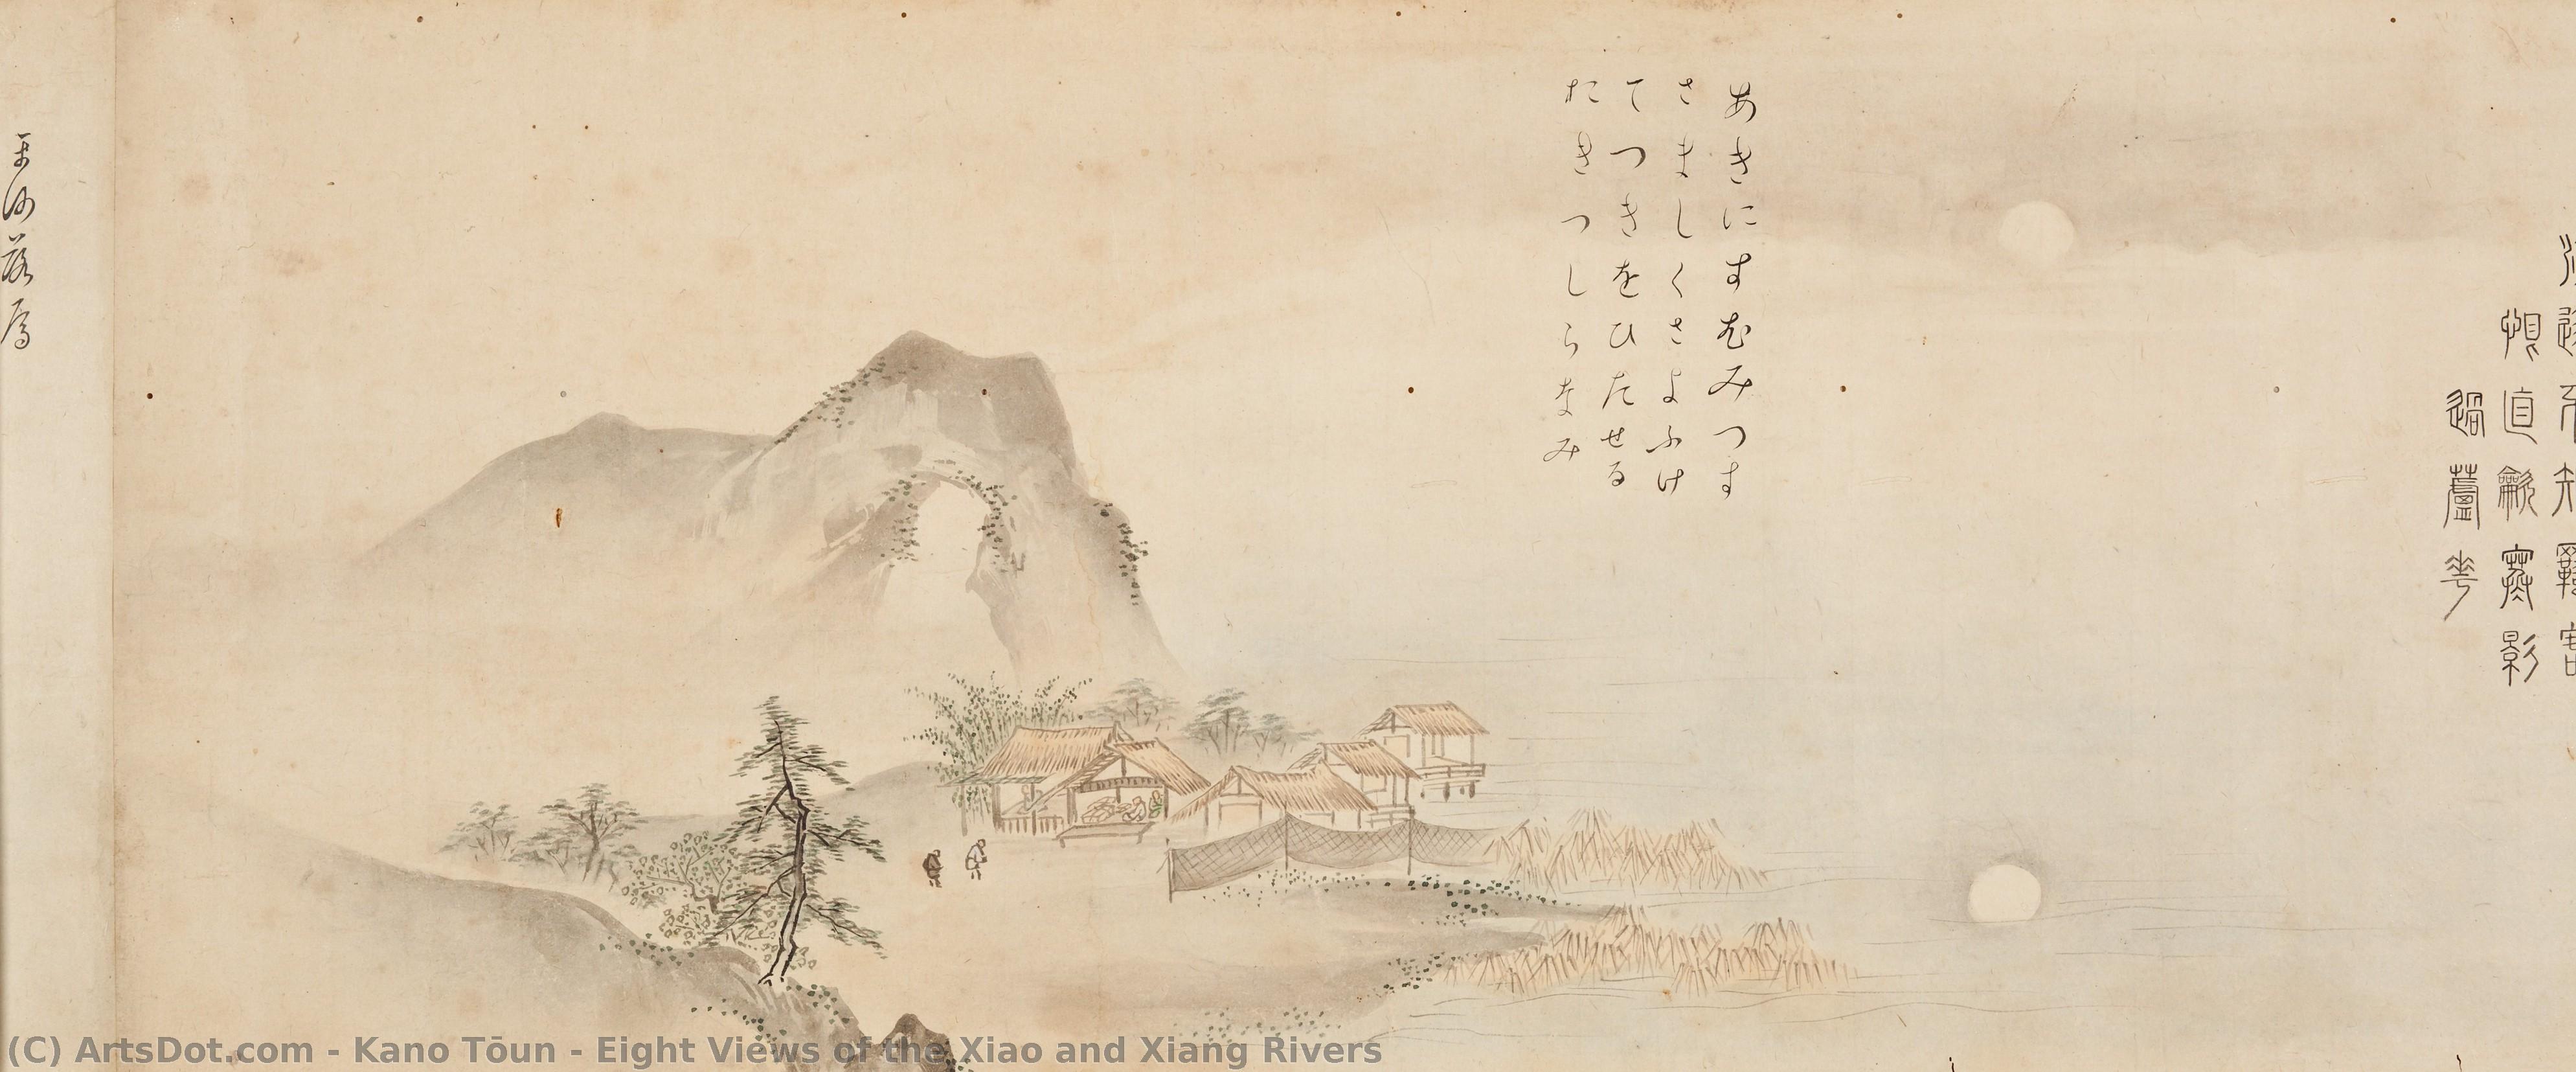 恨直歛寒影
過蘆花
あきにすむみつす
さましくさよふけ
てつきをひたせる
おきつしらなみ
平沙落雁
(C) ArtsDot.com - Kano Tōun - Eight Views of the Xiao and Xiang Rivers